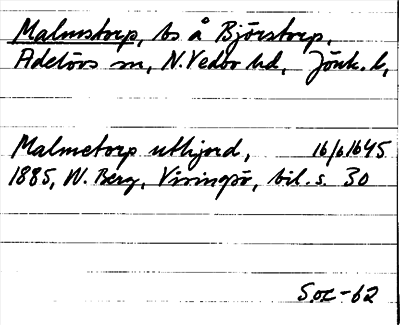 Malmstorp, ts å Björstorp,
Adelövs sn, N. Vedbo hd, Jönk. l,
Malmetorp uthjord, 16/6 1645
1885, W. Berg, Visingsö, bil. s. 30
Soc-62